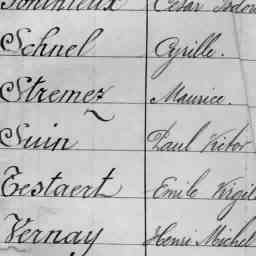 Schnel Cyrille.
Stremez Maurice.
Suin Paul Victor
Testaert Emile Virgil
Vernay Henri Michel